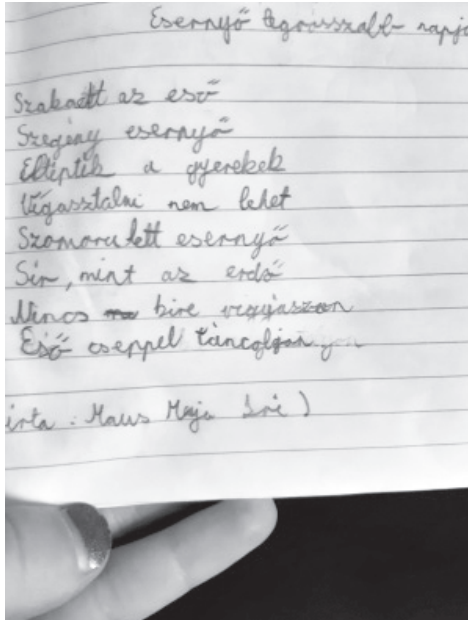 Esernyő legrosszabb napja
Szakadt az eső
Szegény esernyő
Eltépték a gyerekek
Vígasztalni nem lehet
Szomoru lett esernyő
Sír, mint az erdő
Nincs kire vigyázzon
Eső cseppel táncoljon
írta: Maus Maja